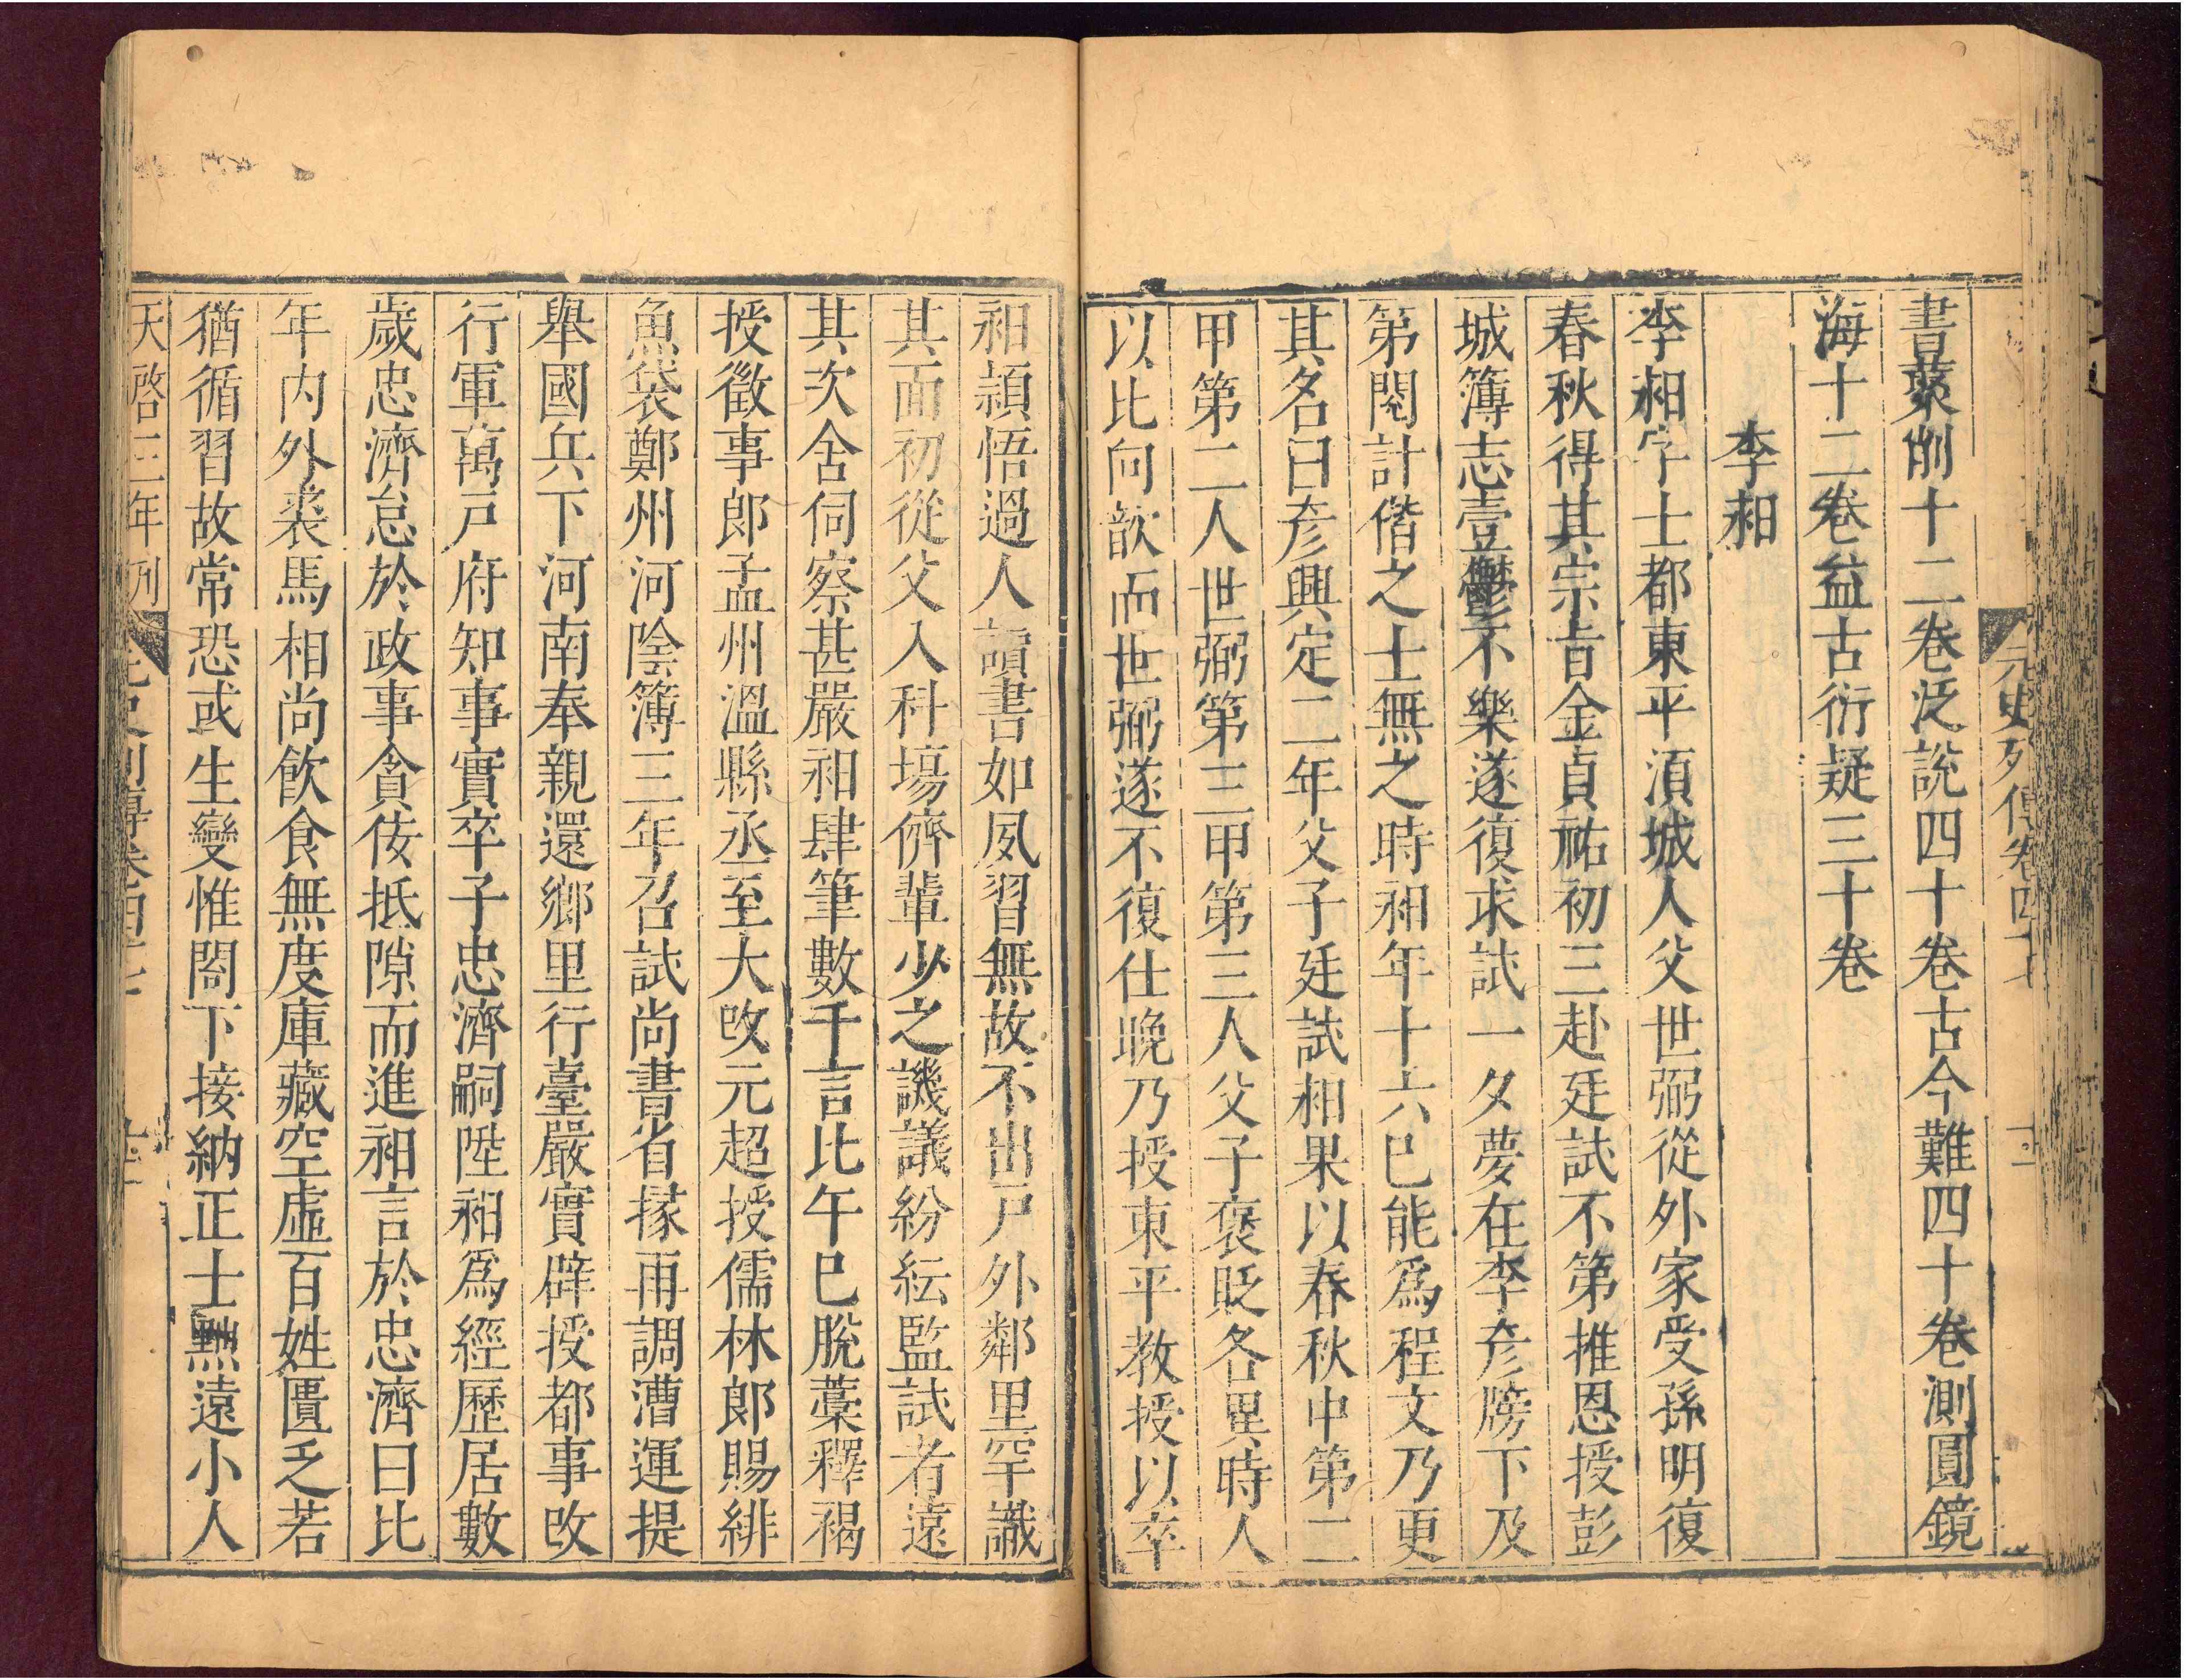 元史列傳卷四十七
書藂削十二卷泛說四十卷古今難四十卷測圓鏡
海十二卷益古衍疑三十卷
李昶
李昶字士都東平湏城人父世弼從外家受孫明復
春秋得其宗旨金貞祐初三赴廷試不第推恩授彭
城簿志壹鬱不樂遂復求試一夕夢在李彦牓下及
第閱計偕之士無之時昶年十六巳能爲程文乃更
其名曰彦興定二年父子廷試昶果以春秋中第二
甲第二人世弼第三甲第三人父子褒貶各異時人
以比向歆而世弼遂不復仕晩乃授東平教授以卒
昶頴悟過人讀書如夙習無故不出戸外鄰里罕識
其面初從父入科塲儕輩少之譏議紛紜監試者遠
其次舍伺察甚嚴昶肆筆數千言比午巳脫藁釋褐
授徵事郎孟州溫縣丞至大改元超授儒林郎賜緋
魚袋鄭州河陰簿三年召試尚書省掾再調漕運提
舉國兵下河南奉親還鄉里行臺嚴實辟授都事改
行軍萬戸府知事實卒子忠濟嗣陞昶爲經歷居數
歲忠濟怠於政事貪佞抵隙而進昶言於忠濟曰比
年内外裘馬相尚飮食無度庫藏空虛百姓匱乏若
猶循習故常恐或生變惟閤下接納正士黜遠小人
天啓三年刋 元史列傳卷四十七